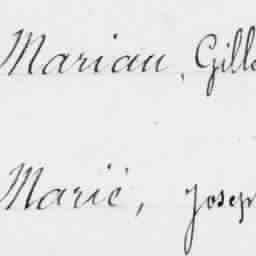 Marian, Gill
Marié, Josep